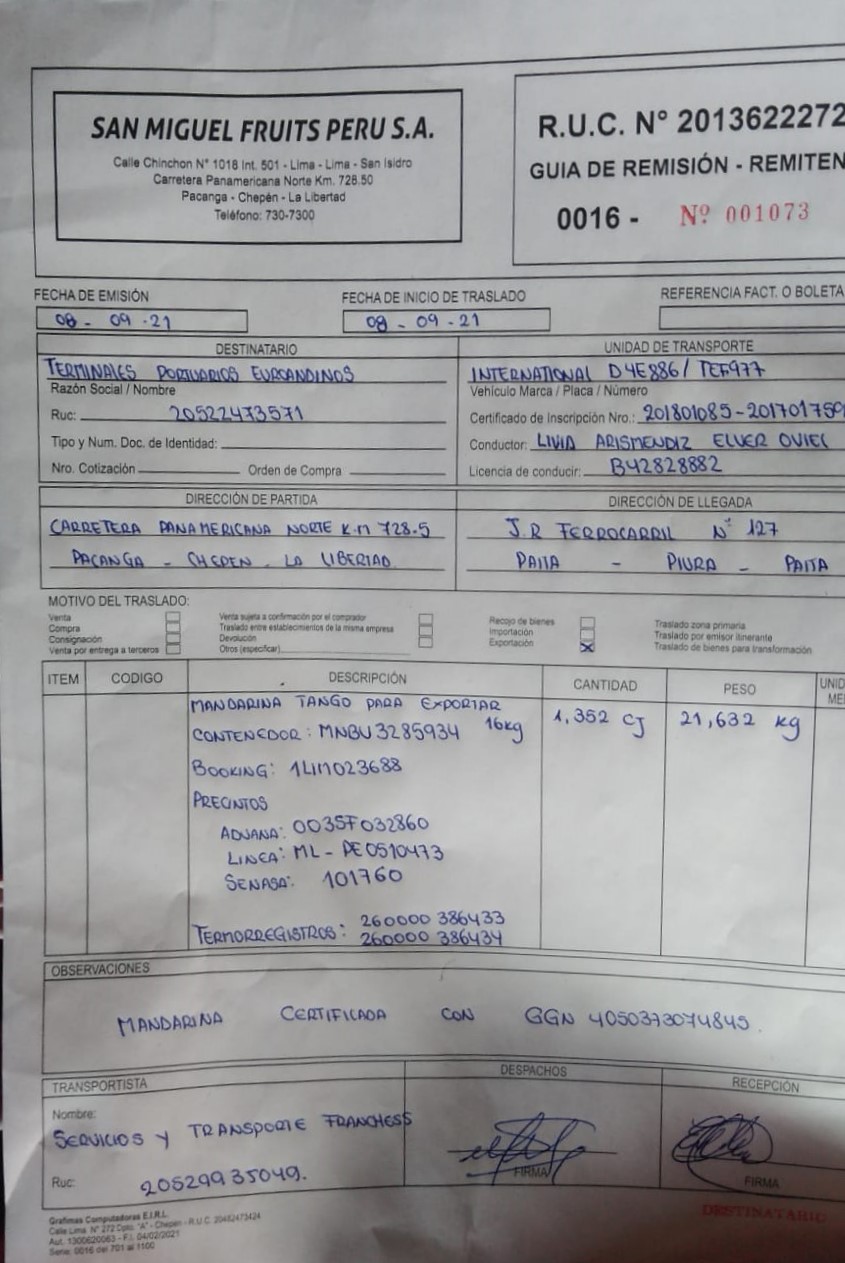 SAN MIGUEL FRUITS PERU S.A.
Calle Chinchon N° 1018 Int. 501 - Lima - Lima - San Isidro
Carretera Panamericana Norte Km. 728.50
Pacanga - Chepén - La Libertad
Teléfono: 730-7300
R.U.C. N° 2013622272
GUIA DE REMISIÓN - REMITEN
0016 - Nº 001073
FECHA DE EMISIÓN
08 - 09 - 21
FECHA DE INICIO DE TRASLADO
08 - 09 - 21
REFERENCIA FACT. O BOLETA
DESTINATARIO
TERMINALES PORTUARIOS EUROANDINOS
Razón Social / Nombre
Ruc: 20522473571
Tipo y Num. Doc. de Identidad:
Nro. Cotización Orden de Compra
UNIDAD DE TRANSPORTE
INTERNATIONAL D4E886 / TEF977
Vehículo Marca / Placa / Número
Certificado de Inscripción Nro.: 201801085-201701759
Conductor: LIVIA ARISMENDIZ ELVER OVIEL
Licencia de conducir: B42828882
DIRECCIÓN DE PARTIDA
CARRETERA PANAMERICANA NORTE K.m 728.5
PACANGA - CHEPEN - LA LIBERTAD
DIRECCIÓN DE LLEGADA
J.R FERROCARRIL N° 127
PAITA - PIURA - PAITA
MOTIVO DEL TRASLADO:
Venta
Compra
Consignación
Venta por entrega a terceros
Venta sujeta a confirmación por el comprador
Traslado entre establecimientos de la misma empresa
Devolución
Otros (especificar)
Recojo de bienes
Importación
Exportación X
Traslado zona primaria
Traslado por emisor itinerante
Traslado de bienes para transformación
ITEM CODIGO DESCRIPCIÓN CANTIDAD PESO UNID
ME
MANDARINA TANGO PARA EXPORTAR 16kg 1,352 CJ 21,632 kg
CONTENEDOR: MNBU3285934
BOOKING: 1LIM023688
PRECINTOS
ADUANA: 0035F032860
LINEA: ML-PE0510473
SENASA: 101760
TERMORREGISTROS: 260000 386433
260000 386434
OBSERVACIONES
MANDARINA CERTIFICADA CON GGN 4050373074845.
TRANSPORTISTA
Nombre:
SERVICIOS Y TRANSPORTE FRANCHESS
Ruc: 20529935049.
DESPACHOS
FIRMA
RECEPCIÓN
FIRMA
Grafimas Computadoras E.I.R.L.
Calle Lima N° 272 Dpto. "A" - Chepen - R.U.C. 20482473424
Aut. 1300620063 - F.I. 04/02/2021
Serie: 0016 del 701 al 1100
DESTINATARIO